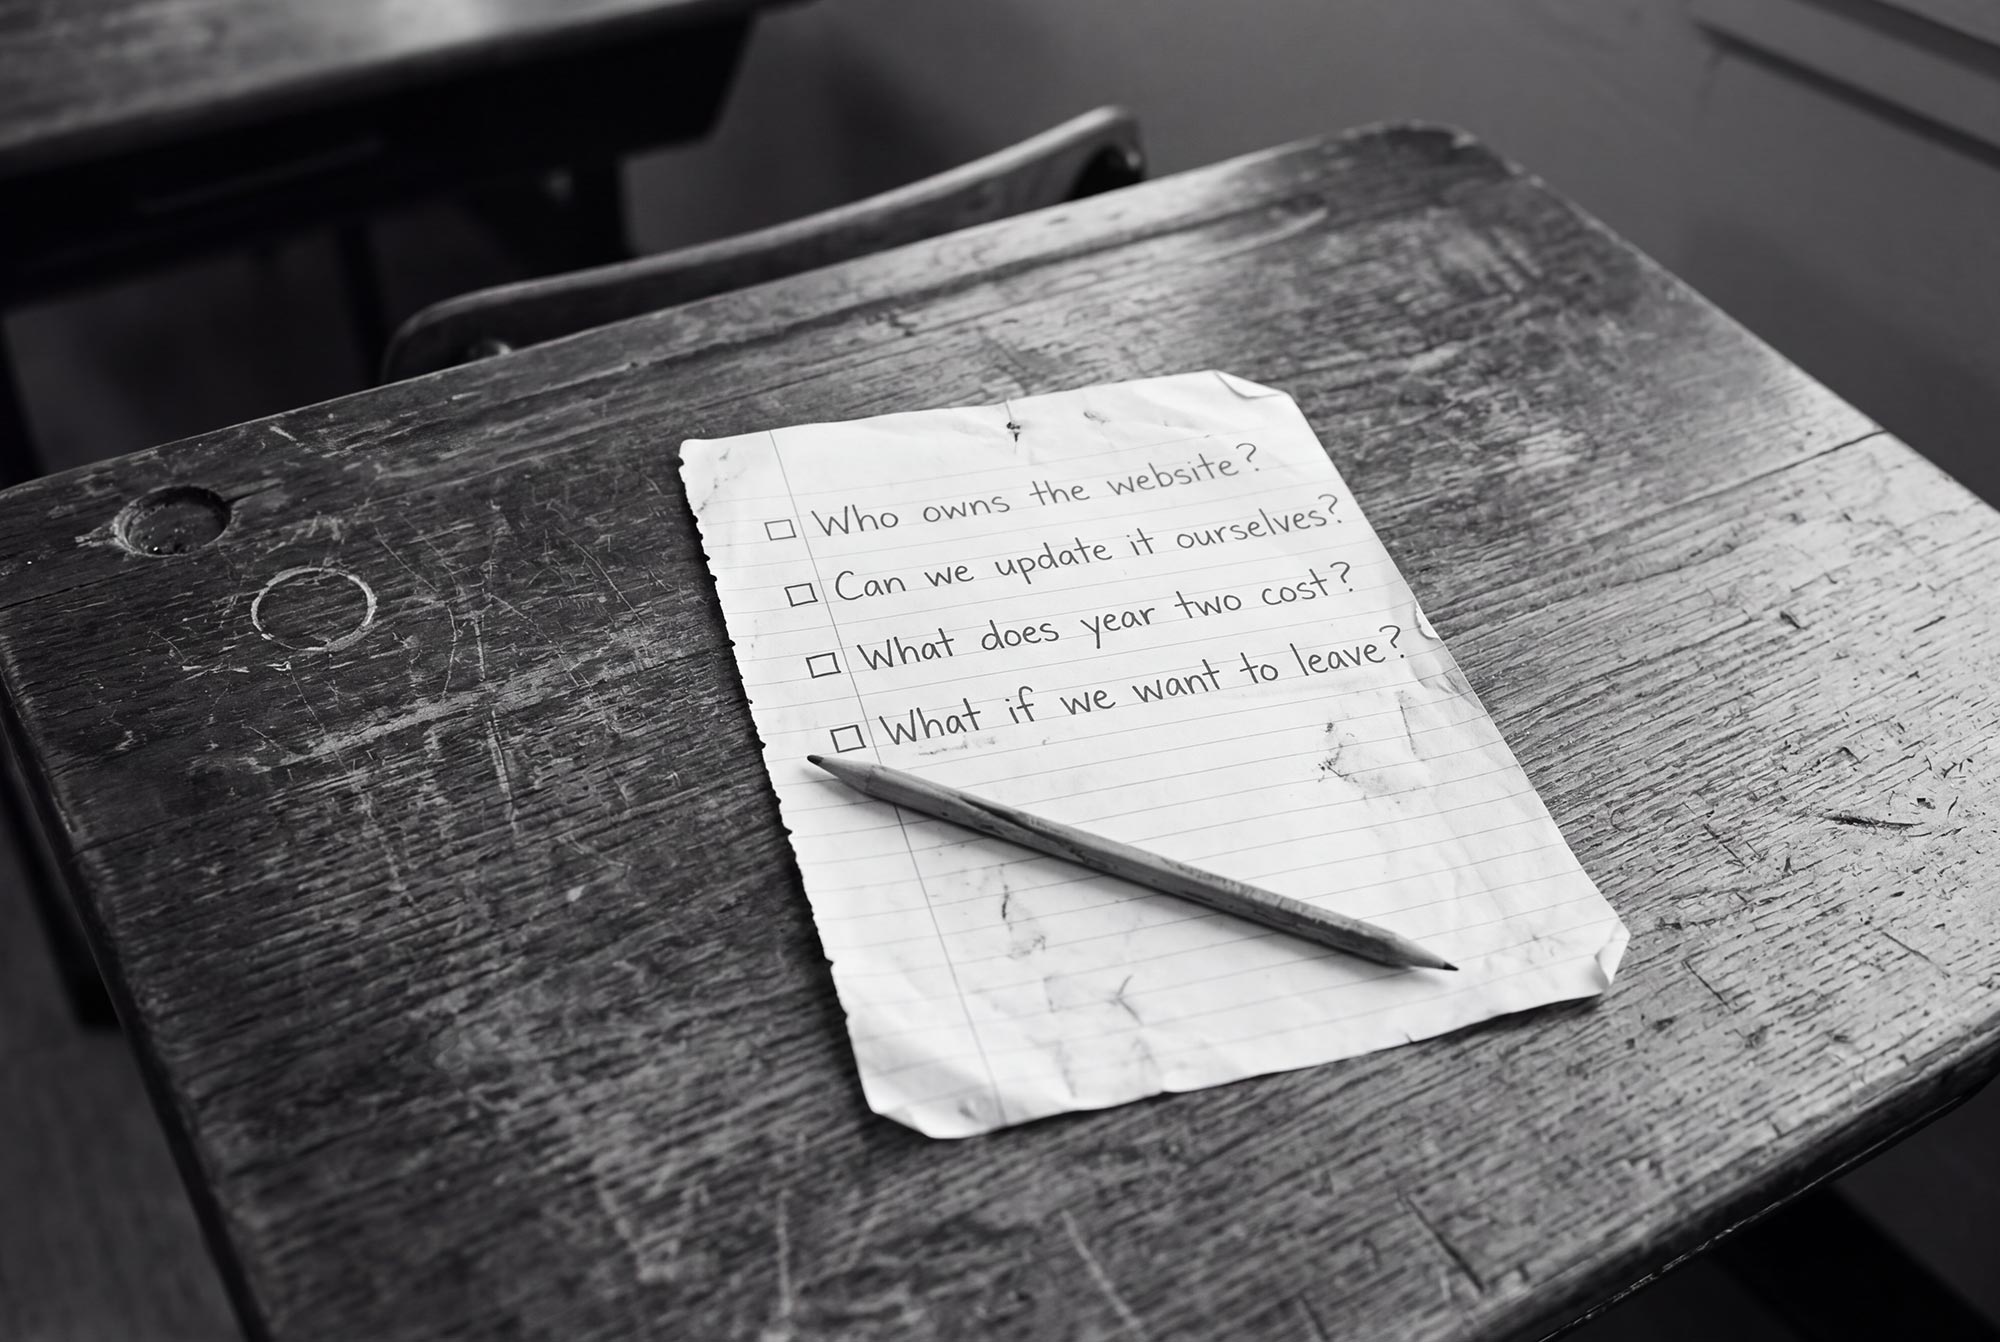 Who owns the website?
Can we update it ourselves?
What does year two cost?
What if we want to leave?